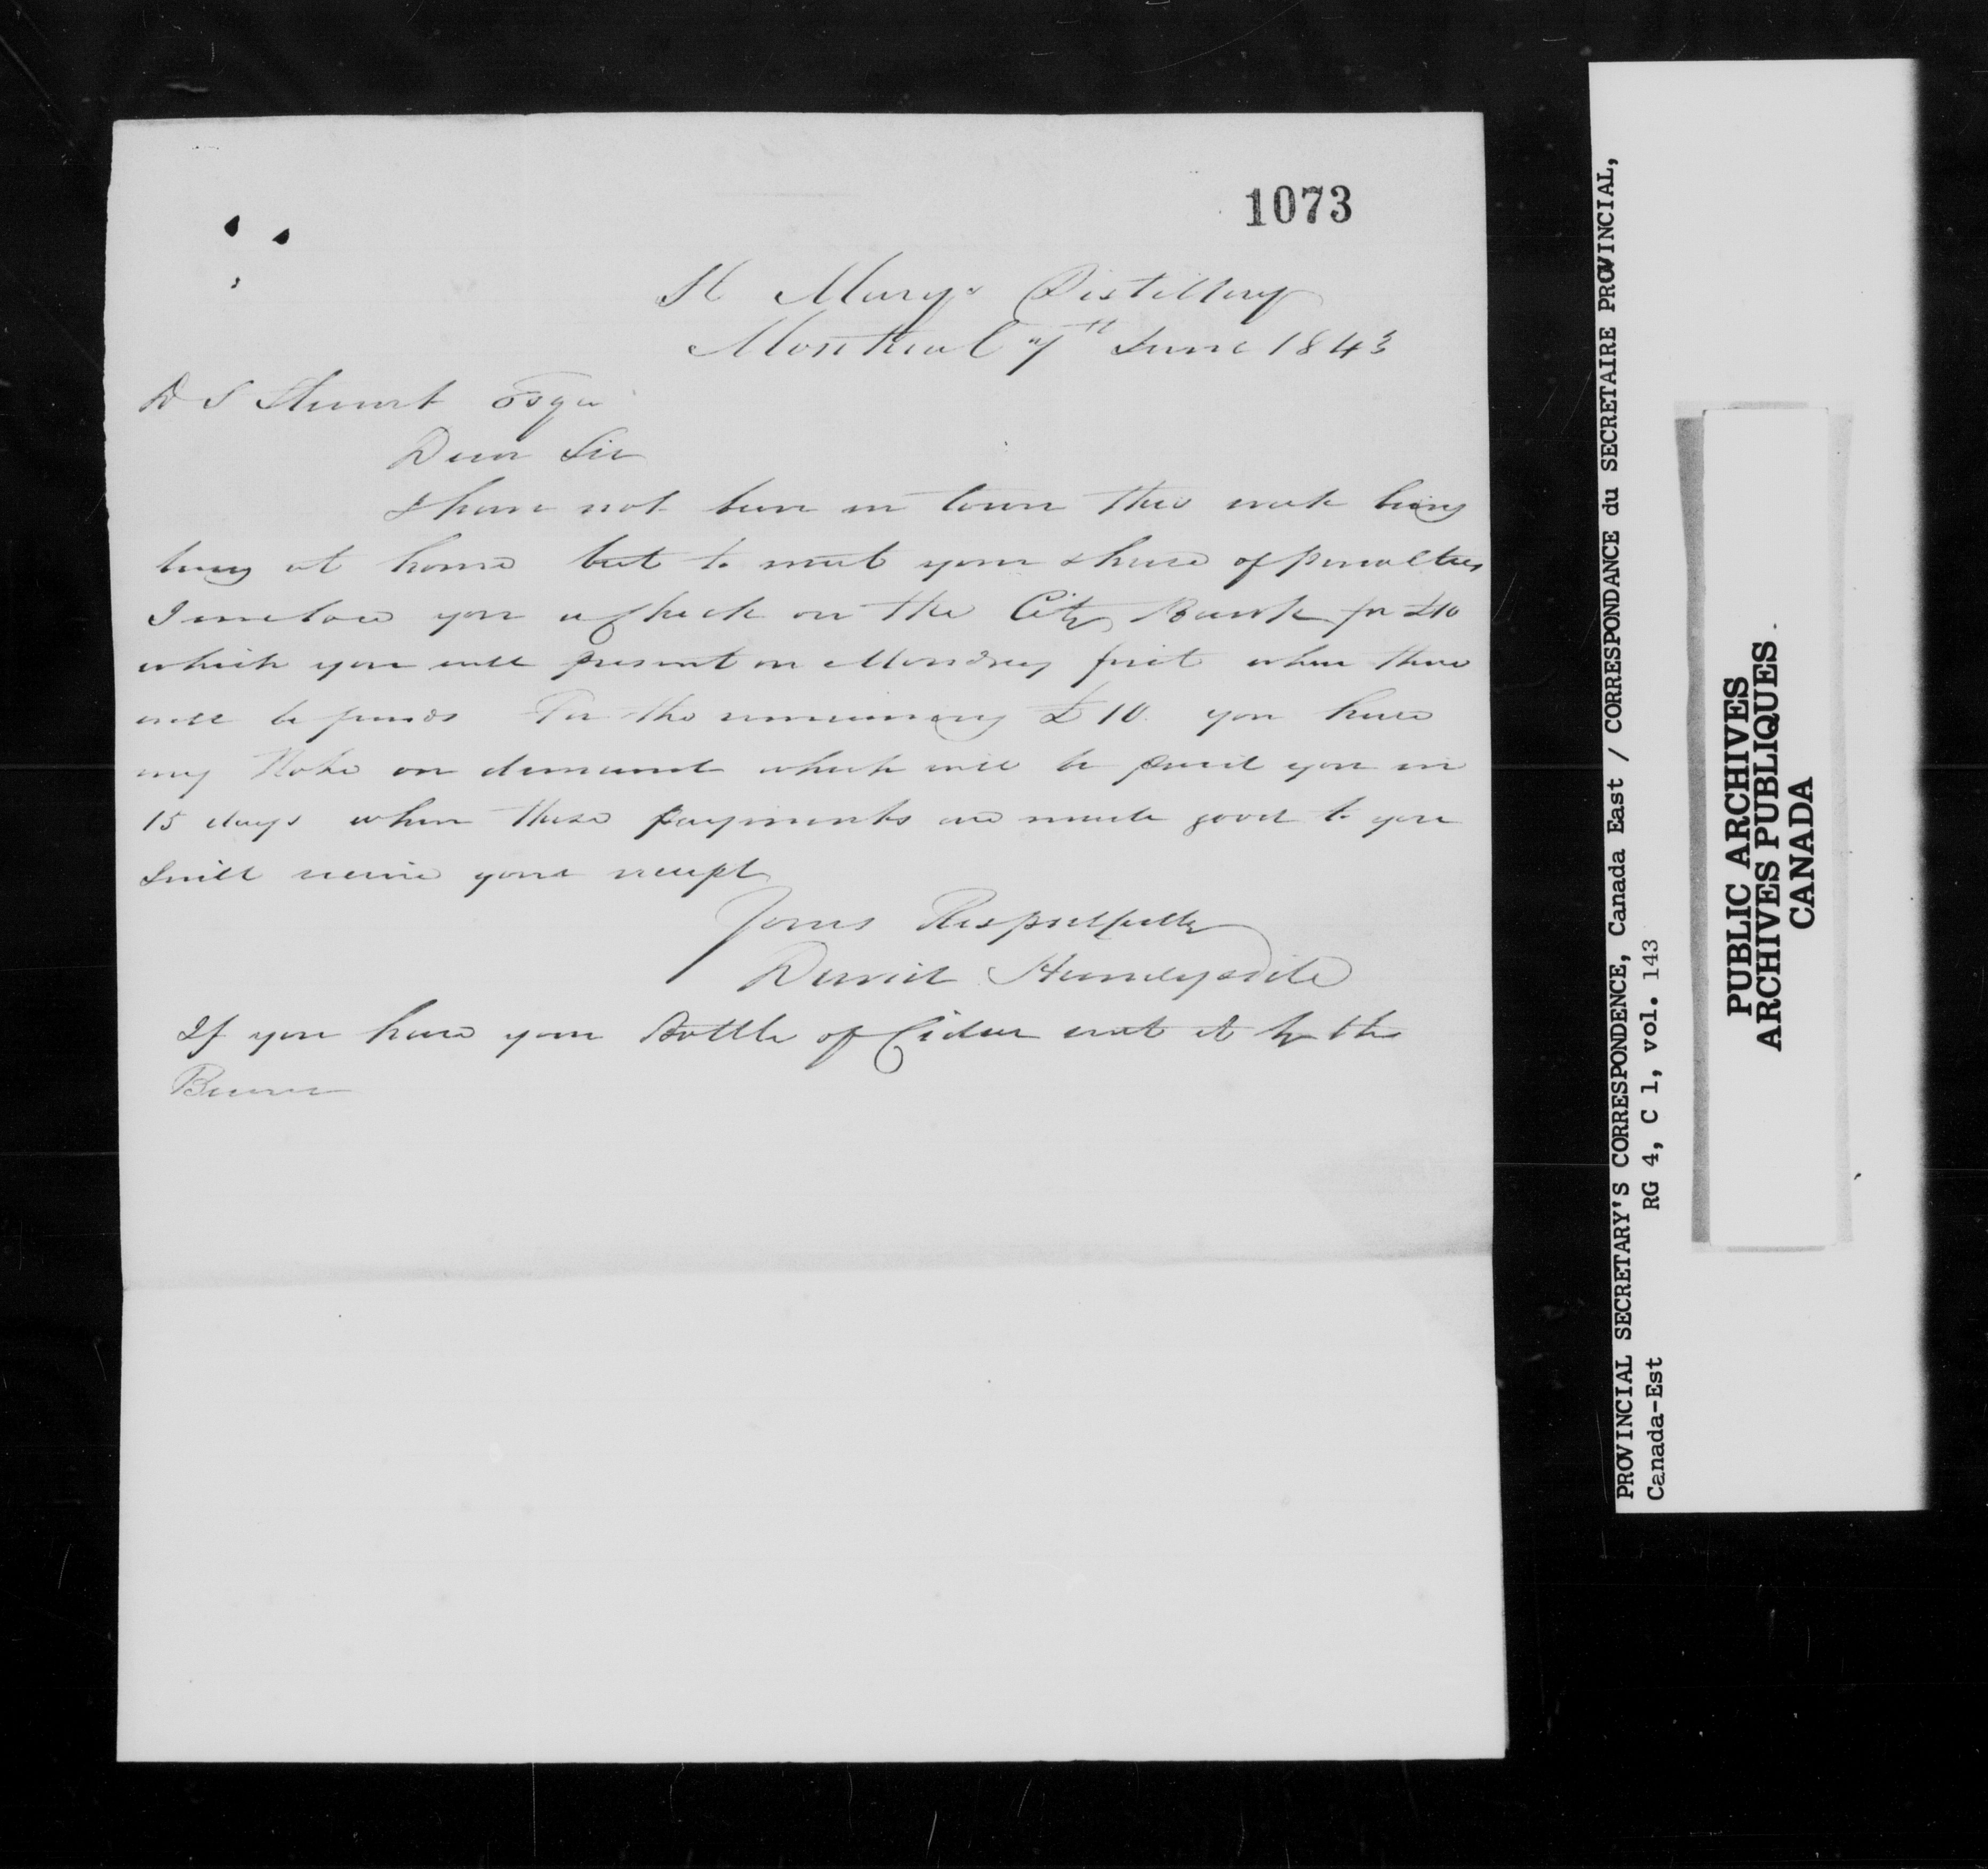 1073
St Marys Distillery
Montreal 7th June 1843
D S Stuart Esqr
Dear Sir
I have not been in town this week being
busy at home but to meet your share of penalties
I inclose you a check on the City Bank for £10
which you will present on Monday first when there
will be funds For the remaining £10 you have
my Note on demand which will be paid you in
15 days when these payments are made good to you
I will receive your receipt
Yours Respectfully
David Handyside
If you have your Bottle of Cider send it by the
Bearer
PROVINCIAL SECRETARY'S CORRESPONDENCE, Canada East / CORRESPONDANCE du SECRETAIRE PROVINCIAL,
Canada-Est RG 4, C 1, vol. 143
PUBLIC ARCHIVES
ARCHIVES PUBLIQUES
CANADA